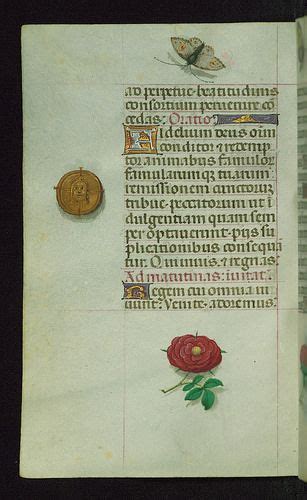 ad perpetue beatitudinis
consortium peruenire cō
cedas: Oratio
Fidelium deus om̄i
conditor ⁊ redemp
tor animabus famulor
famularum qȝ tuarum
remissionem cunctorum
tribue peccatorum ut ī
dulgentiam quam sem
per optauerunt piis su
plicationibus consequā
tur. Qui uiuis. ⁊ regnas
Ad matutinas. inuitat.
Regem cui omnia ui
uunt: Venite adoremus: